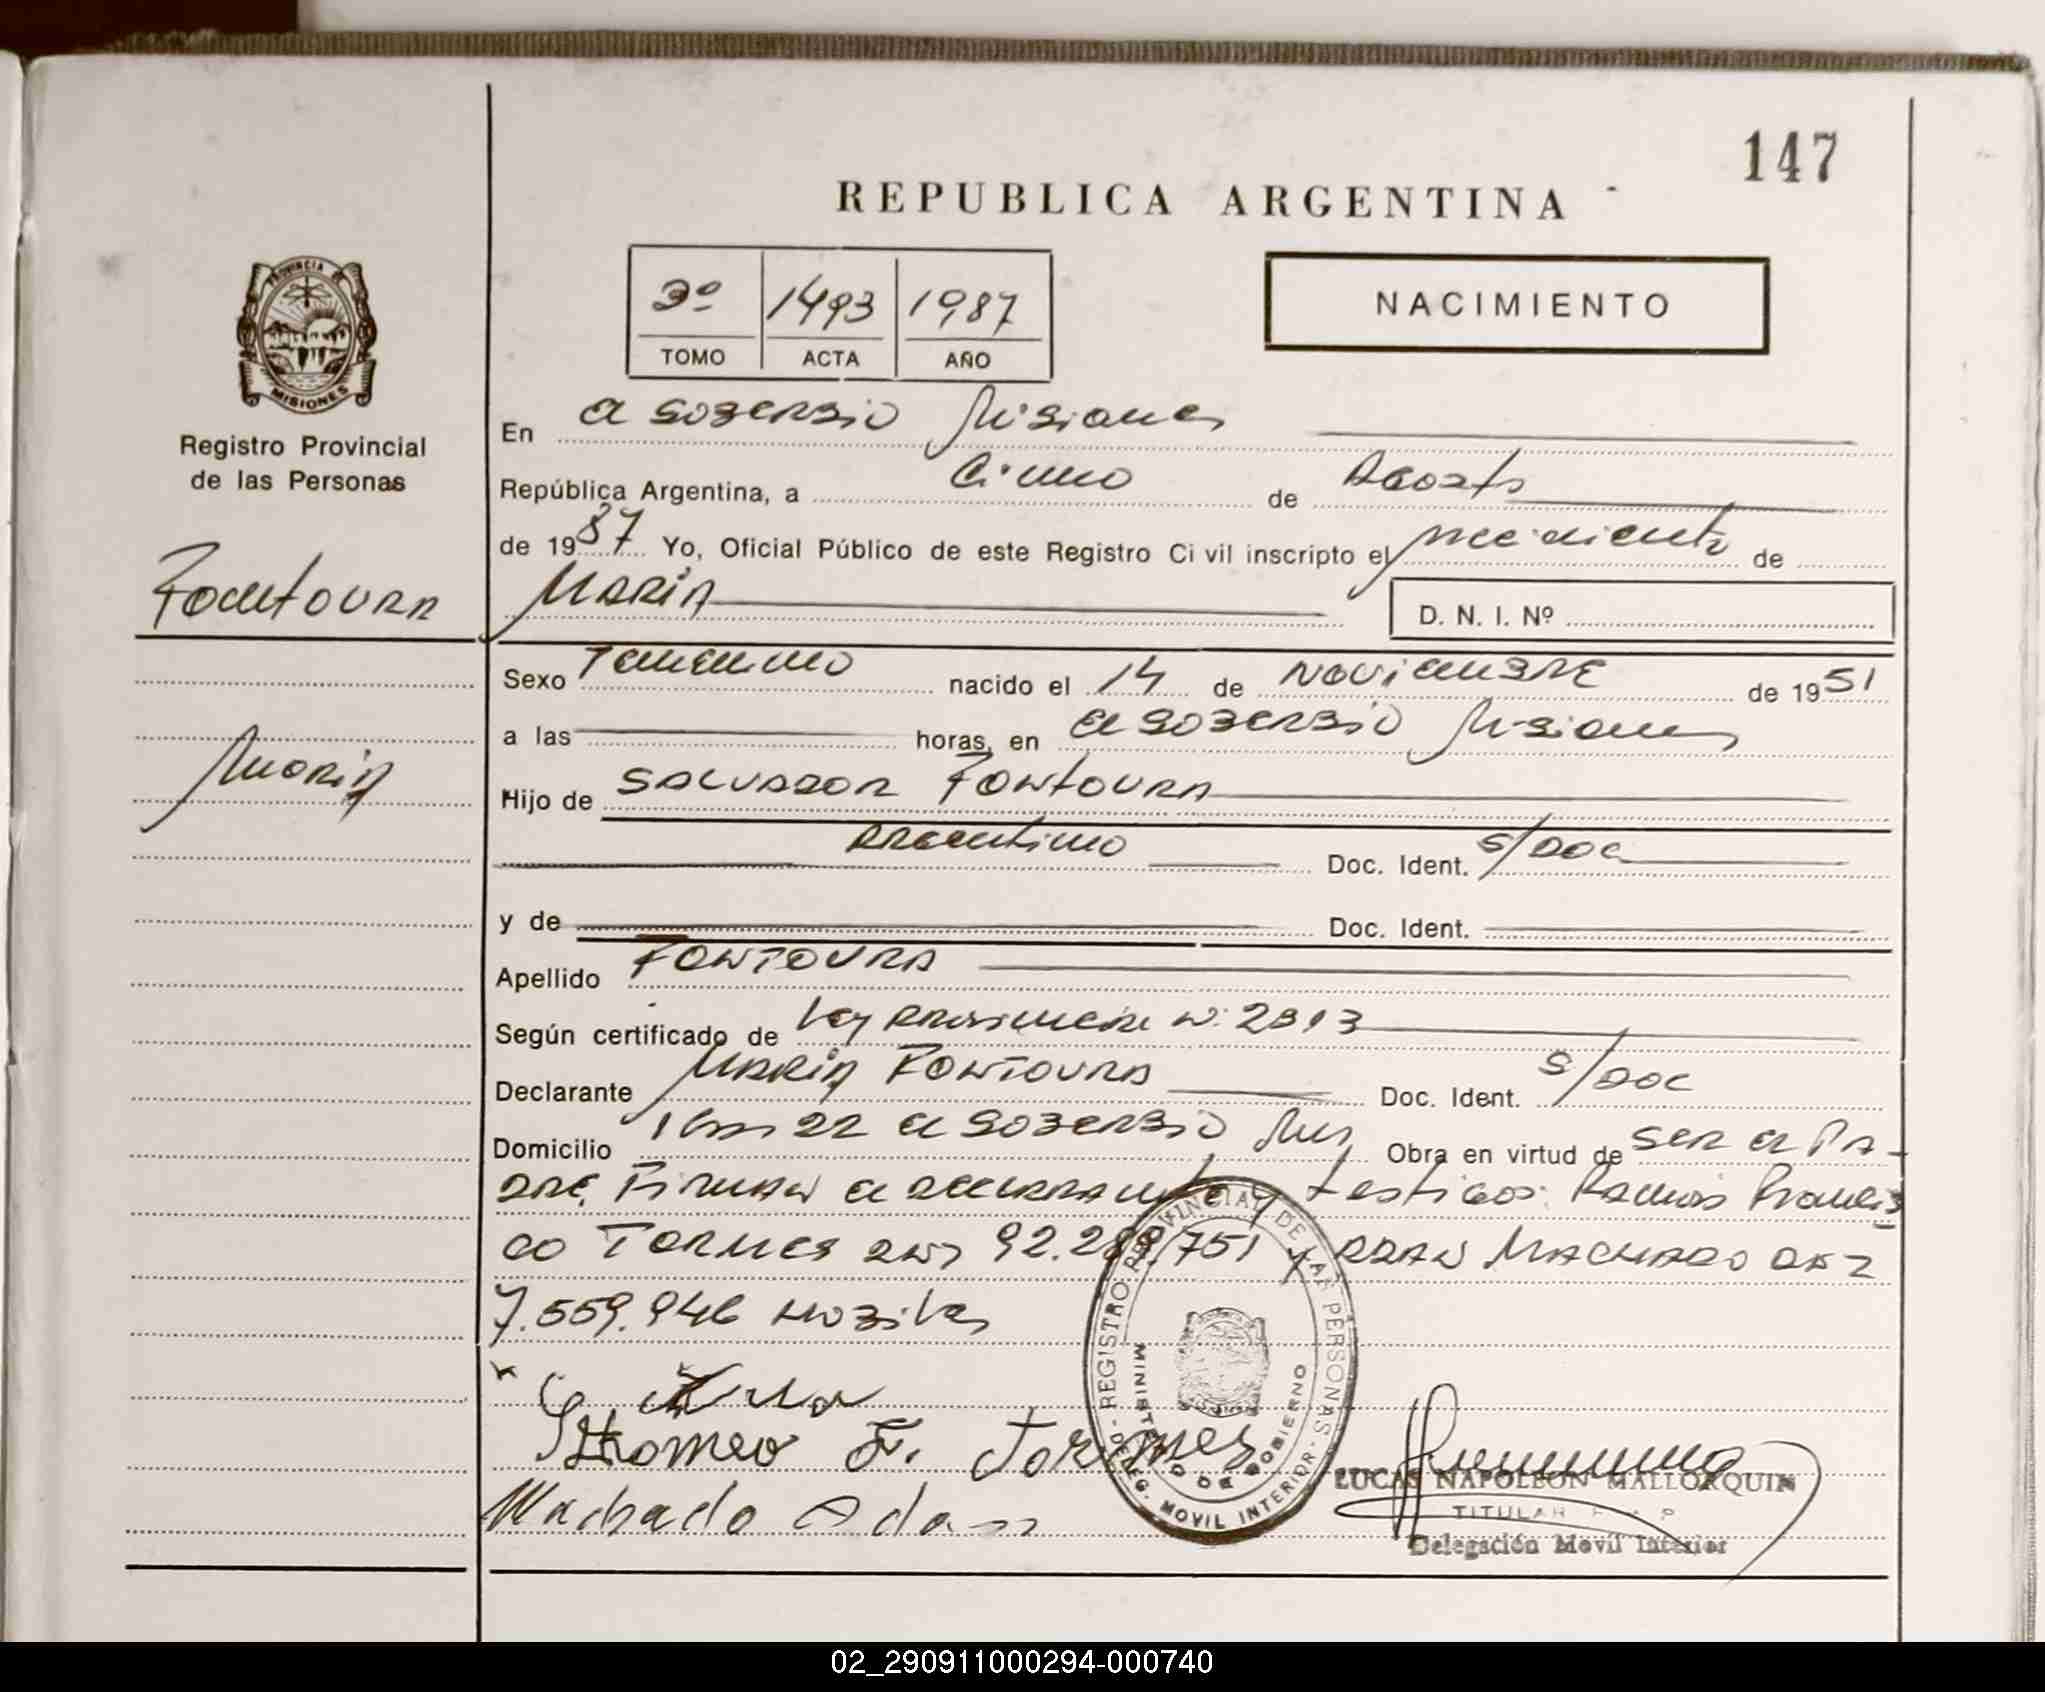 147
REPUBLICA ARGENTINA
3º 1493 1987
TOMO ACTA AÑO
NACIMIENTO
PROVINCIA DE
MISIONES
Registro Provincial
de las Personas
Fontoura
Maria
En El Soberbio Misiones
República Argentina, a Cinco de Agosto
de 1987 Yo, Oficial Público de este Registro Civil inscripto el nacimiento de
Maria D. N. I. Nº
Sexo Femenino nacido el 14 de Noviembre de 1951
a las horas, en El Soberbio Misiones
Hijo de Salvador Fontoura
Argentino Doc. Ident. S/Doc
y de Doc. Ident.
Apellido Fontoura
Según certificado de Ley Provincial N: 2813
Declarante Maria Fontoura Doc. Ident. S/Doc
Domicilio Km 22 El Soberbio Mnes Obra en virtud de ser el Pa-
dre, Firman el declarante y testigos: Ramon Francis
co Tormes DNI 92.289.751 y Adan Machado DNI
7.559.946
F. Tormes
Machado Adan
REGISTRO PROVINCIAL DE LAS PERSONAS
MINISTERIO DE GOBIERNO
DELEG. MOVIL INTERIOR
LUCAS NAPOLEON MALLORQUIN
TITULAR
Delegación Movil Interior
02_290911000294-000740